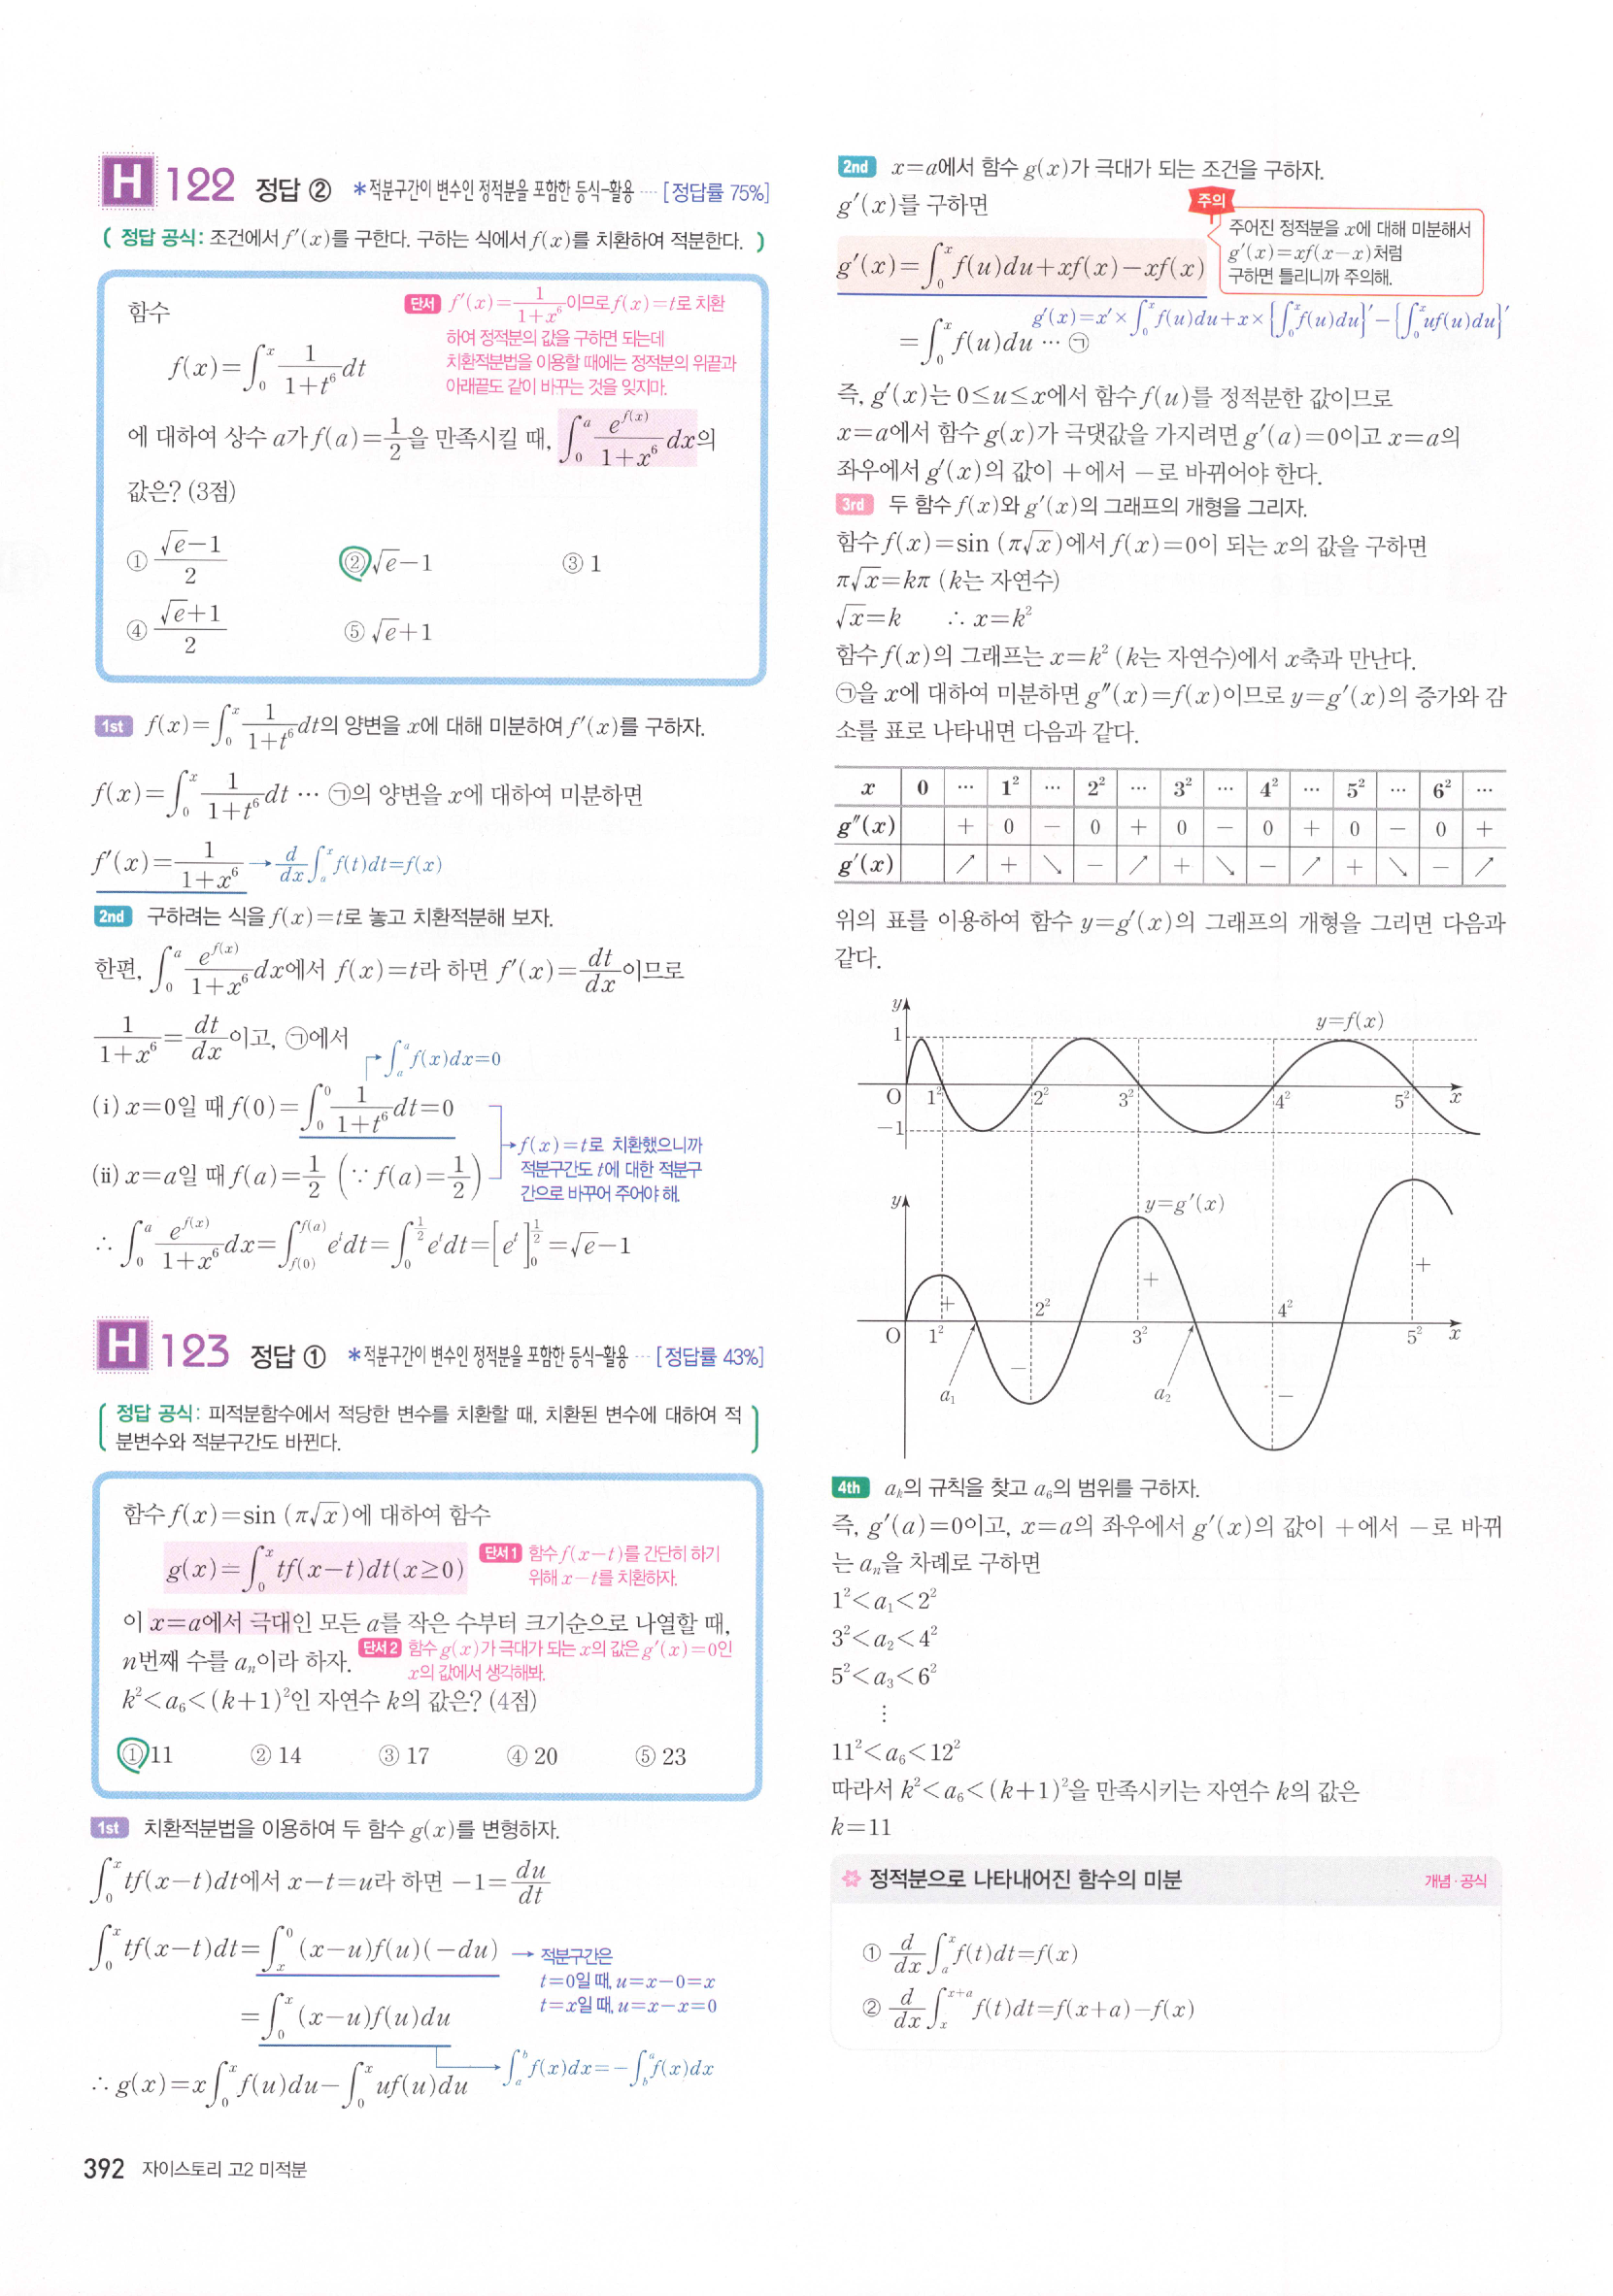 H 122 정답 ② *적분구간이 변수인 정적분을 포함한 등식-활용 ···· [정답률 75%]
( 정답 공식: 조건에서 f′(x)를 구한다. 구하는 식에서 f(x)를 치환하여 적분한다. )
함수
단서 f′(x)=1/(1+x⁶)이므로 f(x)=t로 치환
하여 정적분의 값을 구하면 되는데
치환적분법을 이용할 때에는 정적분의 위끝과
아래끝도 같이 바꾸는 것을 잊지마.
f(x)=∫₀ˣ 1/(1+t⁶) dt
에 대하여 상수 a가 f(a)=1/2을 만족시킬 때, ∫₀ᵃ e^{f(x)}/(1+x⁶) dx의
값은? (3점)
① (√e−1)/2 ② √e−1 ③ 1
④ (√e+1)/2 ⑤ √e+1
1st f(x)=∫₀ˣ 1/(1+t⁶) dt의 양변을 x에 대해 미분하여 f′(x)를 구하자.
f(x)=∫₀ˣ 1/(1+t⁶) dt ··· ㉠의 양변을 x에 대하여 미분하면
f′(x)=1/(1+x⁶) → d/dx ∫ₐˣ f(t)dt=f(x)
2nd 구하려는 식을 f(x)=t로 놓고 치환적분해 보자.
한편, ∫₀ᵃ e^{f(x)}/(1+x⁶) dx에서 f(x)=t라 하면 f′(x)=dt/dx이므로
1/(1+x⁶)=dt/dx이고, ㉠에서
∫ₐᵃ f(x)dx=0
(ⅰ) x=0일 때 f(0)=∫₀⁰ 1/(1+t⁶) dt=0
(ⅱ) x=a일 때 f(a)=1/2 (∵ f(a)=1/2)
→ f(x)=t로 치환했으니까
적분구간도 t에 대한 적분구
간으로 바꾸어 주어야 해.
∴ ∫₀ᵃ e^{f(x)}/(1+x⁶) dx=∫_{f(0)}^{f(a)} eᵗdt=∫₀^{1/2} eᵗdt=[eᵗ]₀^{1/2}=√e−1
H 123 정답 ① *적분구간이 변수인 정적분을 포함한 등식-활용 ···· [정답률 43%]
( 정답 공식: 피적분함수에서 적당한 변수를 치환할 때, 치환된 변수에 대하여 적
분변수와 적분구간도 바뀐다. )
함수 f(x)=sin (π√x)에 대하여 함수
g(x)=∫₀ˣ tf(x−t)dt(x≥0)
단서1 함수 f(x−t)를 간단히 하기
위해 x−t를 치환하자.
이 x=a에서 극대인 모든 a를 작은 수부터 크기순으로 나열할 때,
n번째 수를 aₙ이라 하자.
단서2 함수 g(x)가 극대가 되는 x의 값은 g′(x)=0인
x의 값에서 생각해봐.
k²<a₆<(k+1)²인 자연수 k의 값은? (4점)
① 11 ② 14 ③ 17 ④ 20 ⑤ 23
1st 치환적분법을 이용하여 두 함수 g(x)를 변형하자.
∫₀ˣ tf(x−t)dt에서 x−t=u라 하면 −1=du/dt
∫₀ˣ tf(x−t)dt=∫ₓ⁰ (x−u)f(u)(−du) → 적분구간은
t=0일 때, u=x−0=x
t=x일 때, u=x−x=0
=∫₀ˣ (x−u)f(u)du
→ ∫ₐᵇ f(x)dx=−∫_bᵃ f(x)dx
∴ g(x)=x∫₀ˣ f(u)du−∫₀ˣ uf(u)du
392 자이스토리 고2 미적분
2nd x=a에서 함수 g(x)가 극대가 되는 조건을 구하자.
g′(x)를 구하면
주의
주어진 정적분을 x에 대해 미분해서
g′(x)=xf(x−x)처럼
구하면 틀리니까 주의해.
g′(x)=∫₀ˣ f(u)du+xf(x)−xf(x)
g′(x)=x′×∫₀ˣ f(u)du+x×{∫₀ˣ f(u)du}′−{∫₀ˣ uf(u)du}′
=∫₀ˣ f(u)du ··· ㉠
즉, g′(x)는 0≤u≤x에서 함수 f(u)를 정적분한 값이므로
x=a에서 함수 g(x)가 극댓값을 가지려면 g′(a)=0이고 x=a의
좌우에서 g′(x)의 값이 +에서 −로 바뀌어야 한다.
3rd 두 함수 f(x)와 g′(x)의 그래프의 개형을 그리자.
함수 f(x)=sin (π√x)에서 f(x)=0이 되는 x의 값을 구하면
π√x=kπ (k는 자연수)
√x=k ∴ x=k²
함수 f(x)의 그래프는 x=k² (k는 자연수)에서 x축과 만난다.
㉠을 x에 대하여 미분하면 g″(x)=f(x)이므로 y=g′(x)의 증가와 감
소를 표로 나타내면 다음과 같다.
x 0 ··· 1² ··· 2² ··· 3² ··· 4² ··· 5² ··· 6² ···
g″(x) + 0 − 0 + 0 − 0 + 0 − 0 +
g′(x) ↗ + ↘ − ↗ + ↘ − ↗ + ↘ − ↗
위의 표를 이용하여 함수 y=g′(x)의 그래프의 개형을 그리면 다음과
같다.
y
1
y=f(x)
O 1² 2² 3² 4² 5² x
−1
y
y=g′(x)
+ + +
2² 4²
O 1² 3² 5² x
− −
a₁ a₂
4th aₖ의 규칙을 찾고 a₆의 범위를 구하자.
즉, g′(a)=0이고, x=a의 좌우에서 g′(x)의 값이 +에서 −로 바뀌
는 aₙ을 차례로 구하면
1²<a₁<2²
3²<a₂<4²
5²<a₃<6²
⋮
11²<a₆<12²
따라서 k²<a₆<(k+1)²을 만족시키는 자연수 k의 값은
k=11
정적분으로 나타내어진 함수의 미분 개념·공식
① d/dx ∫ₐˣ f(t)dt=f(x)
② d/dx ∫ₓ^{x+a} f(t)dt=f(x+a)−f(x)